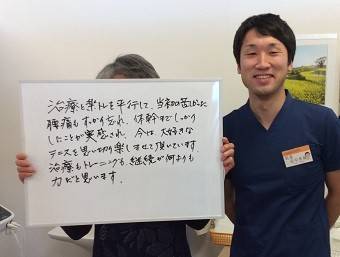 治療と楽トレを平行して、当初の苦しかった
腰痛もすっかり忘れ、体幹までしっかり
したことが実感され、今は、大好きな
テニスを思い切り楽しませて頂いています。
治療もトレーニングも、継続が何よりも
力だと思います。